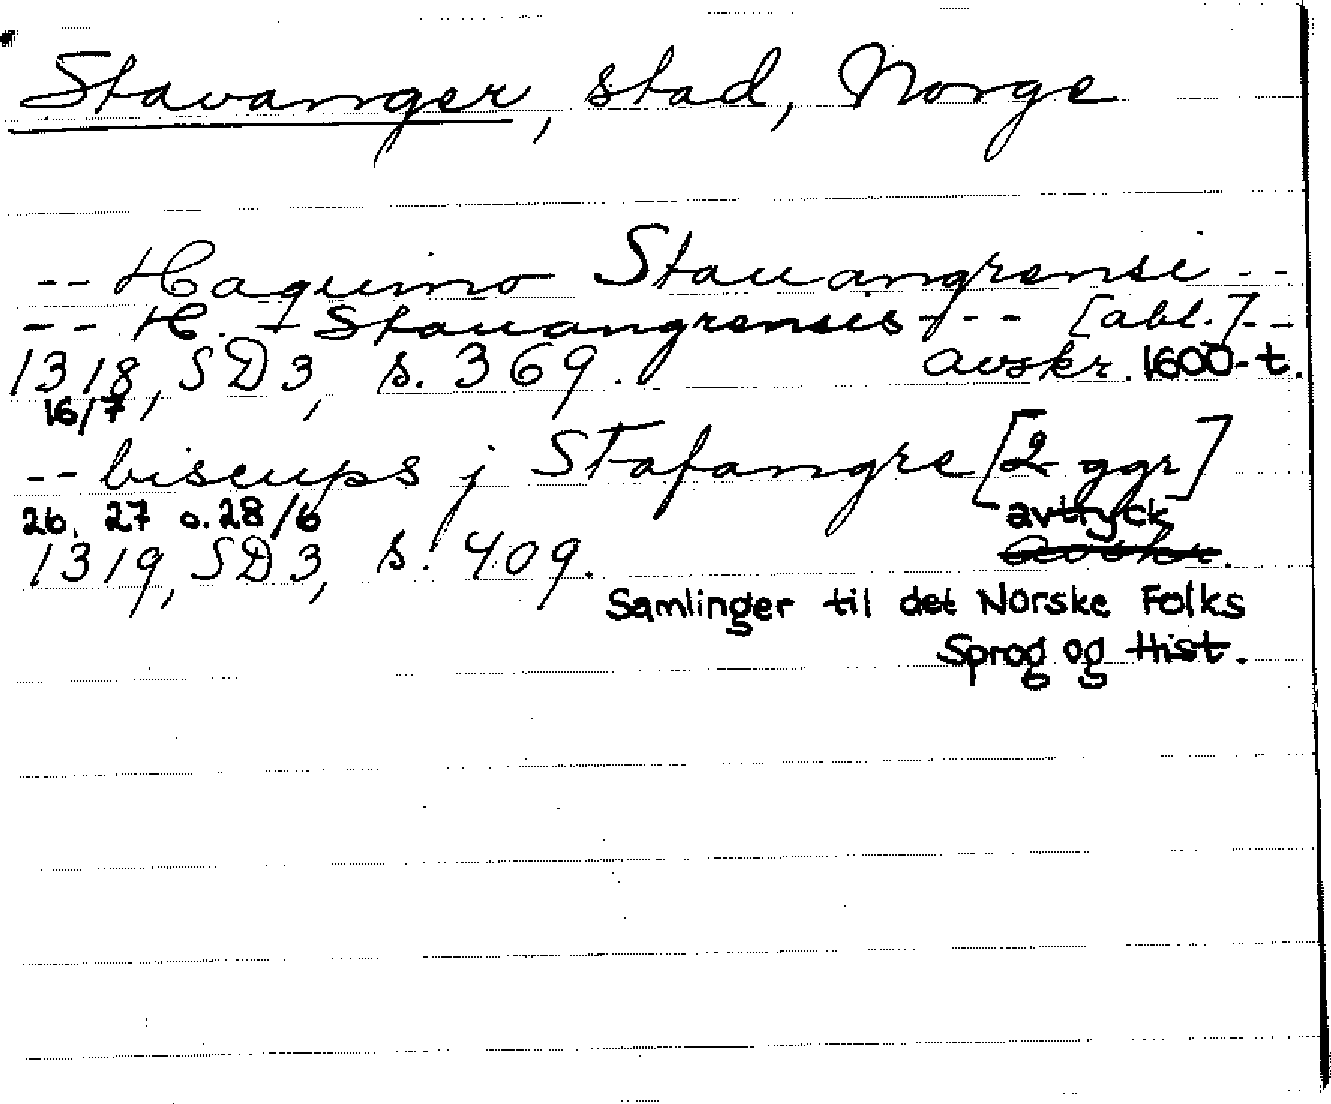 Stavanger, stad, Norge
-- Haquino Stauangrensi --
-- H. - Stauangrensis --- [abl.] --
1318, SD 3, s. 369. avskr. 1600-t.
16/7
-- biscups j Stafangre [2 ggr]
26, 27 o. 28/6 avtryck
1319, SD 3, s. 409. avskr.
Samlinger til det Norske Folks
Sprog og Hist.